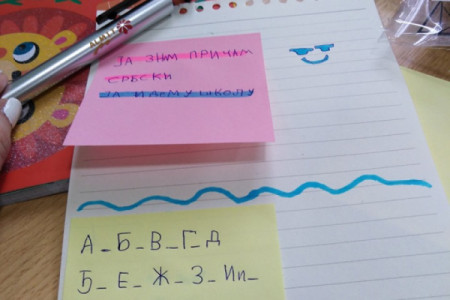 ЈА ЗНМ ПРИЧАМ
СРБСКИ
ЈА ИДЕМ У ШКОЛУ
А_Б_В_Г_Д
Ђ_ Е_ Ж_ З_ Ии_